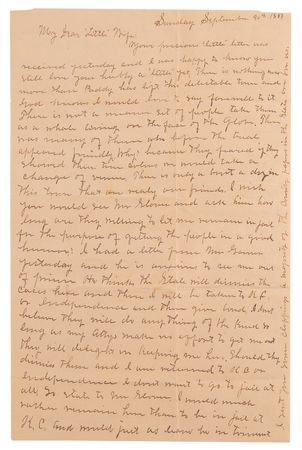 Sunday September 20th 1883
My Dear "Little" Wife.
Your precious little letter was
received yesterday and I was happy to know you
still love your hubby a "little" yet. There is nothing new
more than Buddy has left this delectable town and
God knows I would love to say farewell to it.
There is not a meaner set of people take them
as a whole living on the face of the Globe. There
was many of them who before the trial
appeared friendly Why! because they feared if they
showed their true colors we would take a
change of venue. There is only a
this town that are really our friends. I wish
you would see Mr Glover and ask him how
long are they willing to let me remain in jail
for the purpose of getting the people in a good
humor? I had a letter from Mr
yesterday and he is anxious to see me out
of prison He thinks the State will dismiss the
cases here and then I will be taken to K.C.
or Independence and there give bond. I dont
believe they will do anything of the kind so
long as my Attys make no effort to get me out
they will delight in keeping me here. Should they
dismiss these and I am returned to K.C. or
Independence I dont want to go to jail at
all. So state to Mr Glover. I would much
rather remain here than to be in jail at
K.C. and would just as leave be in